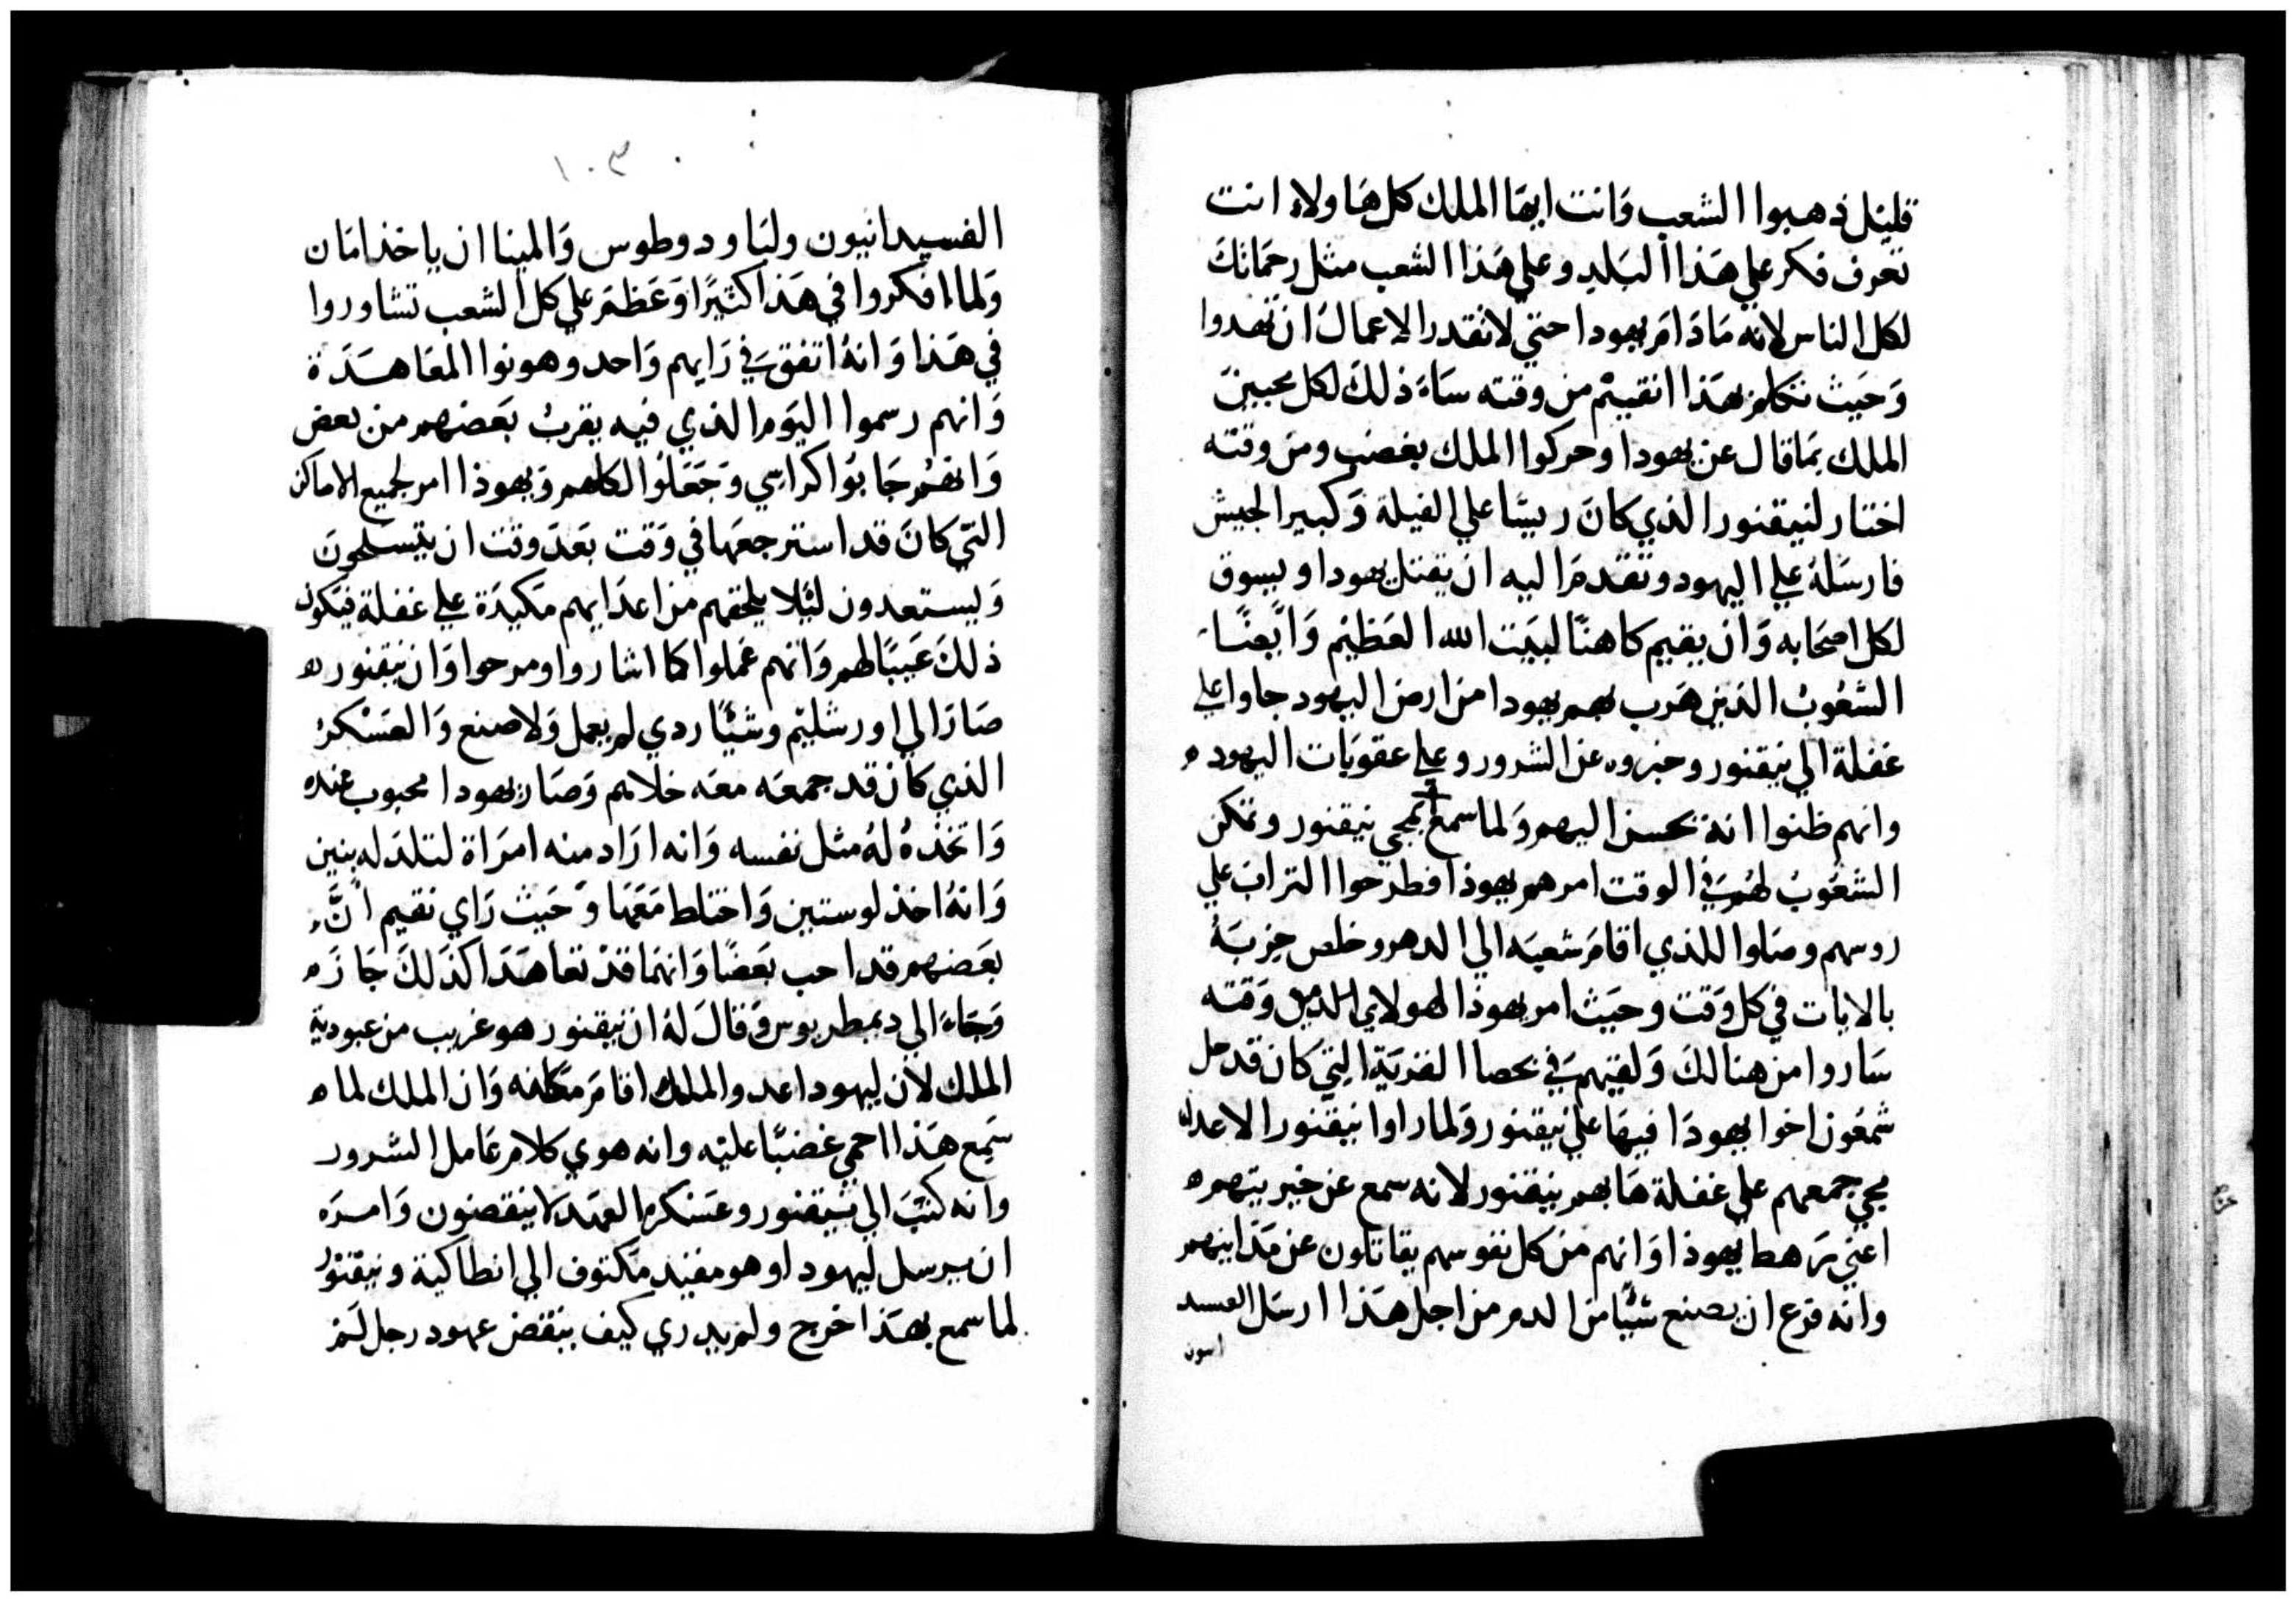 قليل ذهبوا الشعب وَانت ايها الملك كل هَاولاء انت
تعرف فكر علي هَذا البَلد وعلي هَذا الشعب مثل رحمَاتك
لكل الناس لانه مَادَامَ يهودا حتي لا تقدر الاعمال ان تهدوا
وَحَيث تكلم بهَذا انقيتم من وقته سَاءَ ذلكَ لكل محبين
الملك بمَا قال عن يهودا وحركوا الملك بغضب ومن وقته
اختار لنيقنور الذي كانَ ريسًا علي الفيلة وَكبير الجيش
فارسَلهُ علي اليهود وتقدمَ اليه ان يقتل يهودا ويسوق
لكل اصحَابه وَان يقيم كاهنًا لبَيت الله العَظيم وَايضًا
الشعُوبُ الذين هَرب بهم يهودا من ارض اليهود جاوا علي
غفلة الي نيقنور وخبروه عن الشرور وعلي عقوبَات اليهود
وانهم ظنوا انهُ يحسن اليهم وَلما سمع بمجي نيقنور وتمكن
الشعُوبُ لهُم فيَ الوقت امرهم يهوذا فطرَحوا الترابَ علي
روسهم وصَلوا للذي اقامَ شعبَه الي الدهر وخلص حِزبَهُ
بالايات في كل وَقت وحيَث امر يهوذا لهولاي الذين من وَقته
سَاروا من هنالكَ وَلقيَهم فيَ محصا القريَة التي كان قد حل
شمعُون اخوا يهودَا فيهَا علي نيقنور وَلما راوا نيقنور الاعدا
مجي جمعهم علي غفلة هَابهم نيقنور لانه سمع عن خبريتهم
اعني رَهط يهوذا وَانهم من كل نفوسهم يقاتلون عن مَدَاينهم
وانه فزع ان يصنع شيًا من الدم من اجل هَذا ارسَل الفسيد
انيون
١٠٣
الفسيدانيون وليَاودوطوس وَالمينا ان ياخذ امَان
وَلما افكروا في هَذا كثيرًا وَعَظمَ علي كل الشعب تشاوروا
في هَذا وَانهُ اتفقَ في رَايهم وَاحد وهونوا المعَاهَدَة
وَانهم رسموا اليَوم الذي فيه يقربُ بَعَضهم من بعض
وَانهُم جَابوُا كراسي وَجَعَلوُا لكلهم وَيهوذا امر لجميع الاماكن
التي كانَ قد استرجعهَا في وَقت بَعَد وقت ان يتسلحونَ
وَيستعدون ليَلا يلحقهم من اعدَايهم مَكيدَة علي غفلة فيَكون
ذلكَ عَيبًا لهم وَانهم عَملوا كما اشاروا ومرحوا وَان نيقنور
صَارَ الي اورشليم وشيًا ردي لم يعمل وَلا صنع وَالعَسْكرُ
الذي كان قد جمعَه معَه خلاهم وَصَار يهودا محبوب عنده
وَاتخذهُ لهُ مثل نفسه وَانه ارَاد منه امرَاة لتلدَ له بنين
وَانهُ اخذ لوستين وَاختلط مَعَهَا وَحَيث رَاي نقيم انَّ
بَعَضهم قد احب بَعَضًا وَانهمَا قد تعَاهَدَا كذَلكَ جَازَ
وَجَاءَ الي ديمطريوس وَقالَ لهُ ان نيقنور هو غريب من عبودية
الملك لان ليهودا عدو الملك اقامَ مَكانه وَان الملك لما
سَمِع هَذا احمي غضبًا عليَه وانه هوي كلام عَامل الشرور
وانه كتبَ الي نيقنور وعَسَكره العَهد لا ينقضون وَامره
ان يرسل ليهودا وهو مقيد مَكتوف الي انطاكية ونيقنور
لما سمع بهَذا خرج ولم يدري كيف ينقض عهود رجل لَم